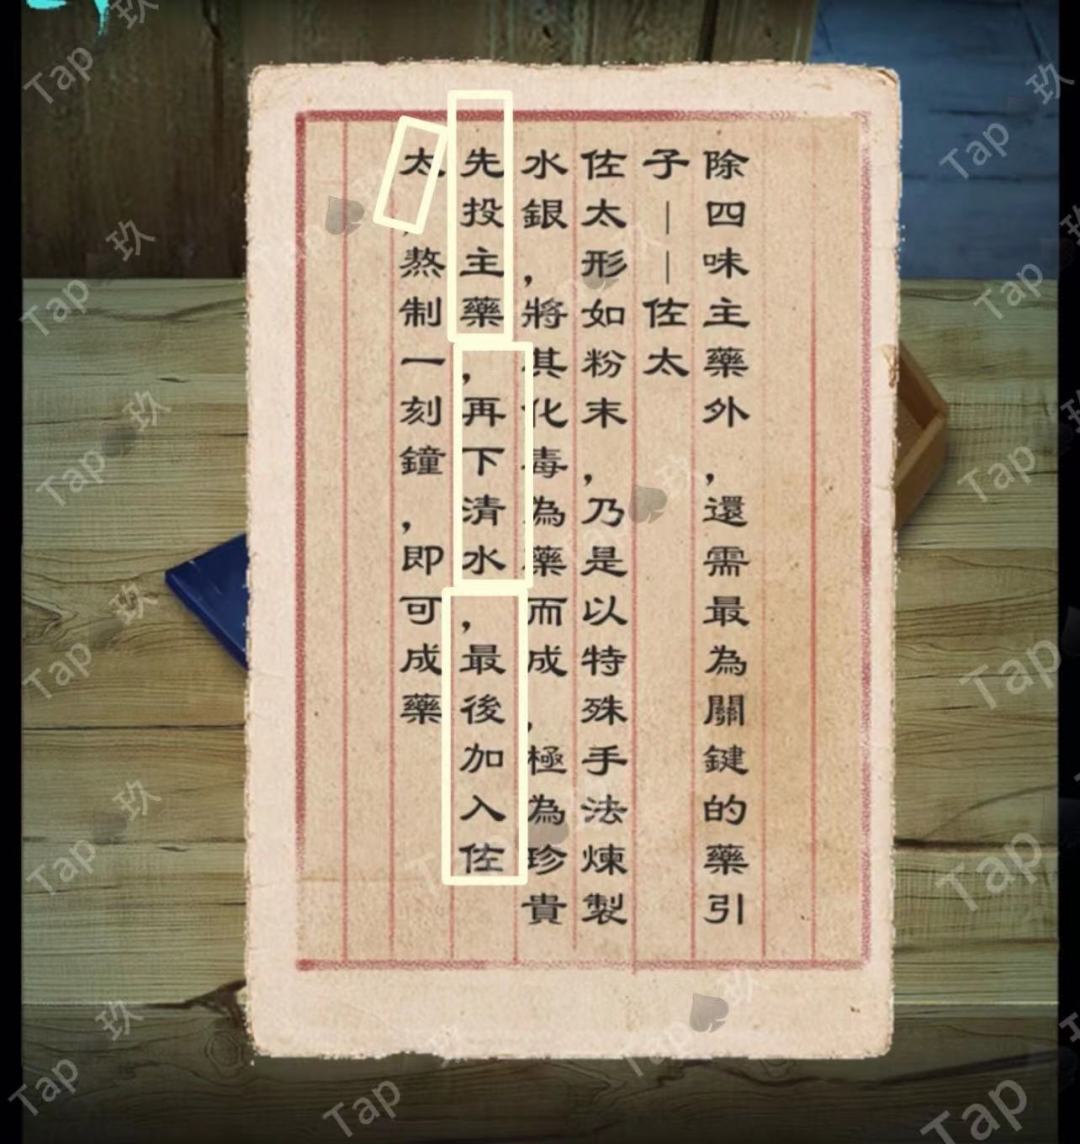 除四味主藥外，還需最為關鍵的藥引
子——佐太
佐太形如粉末，乃是以特殊手法煉製
水銀，將其化毒為藥而成，極為珍貴
先投主藥，再下清水，最後加入佐
太，熬制一刻鐘，即可成藥
Tap
玖
Tap
玖
Tap
玖
Tap
玖
Tap
玖
Tap
玖
Tap
Tap
Tap
Tap
Tap
Tap
Tap